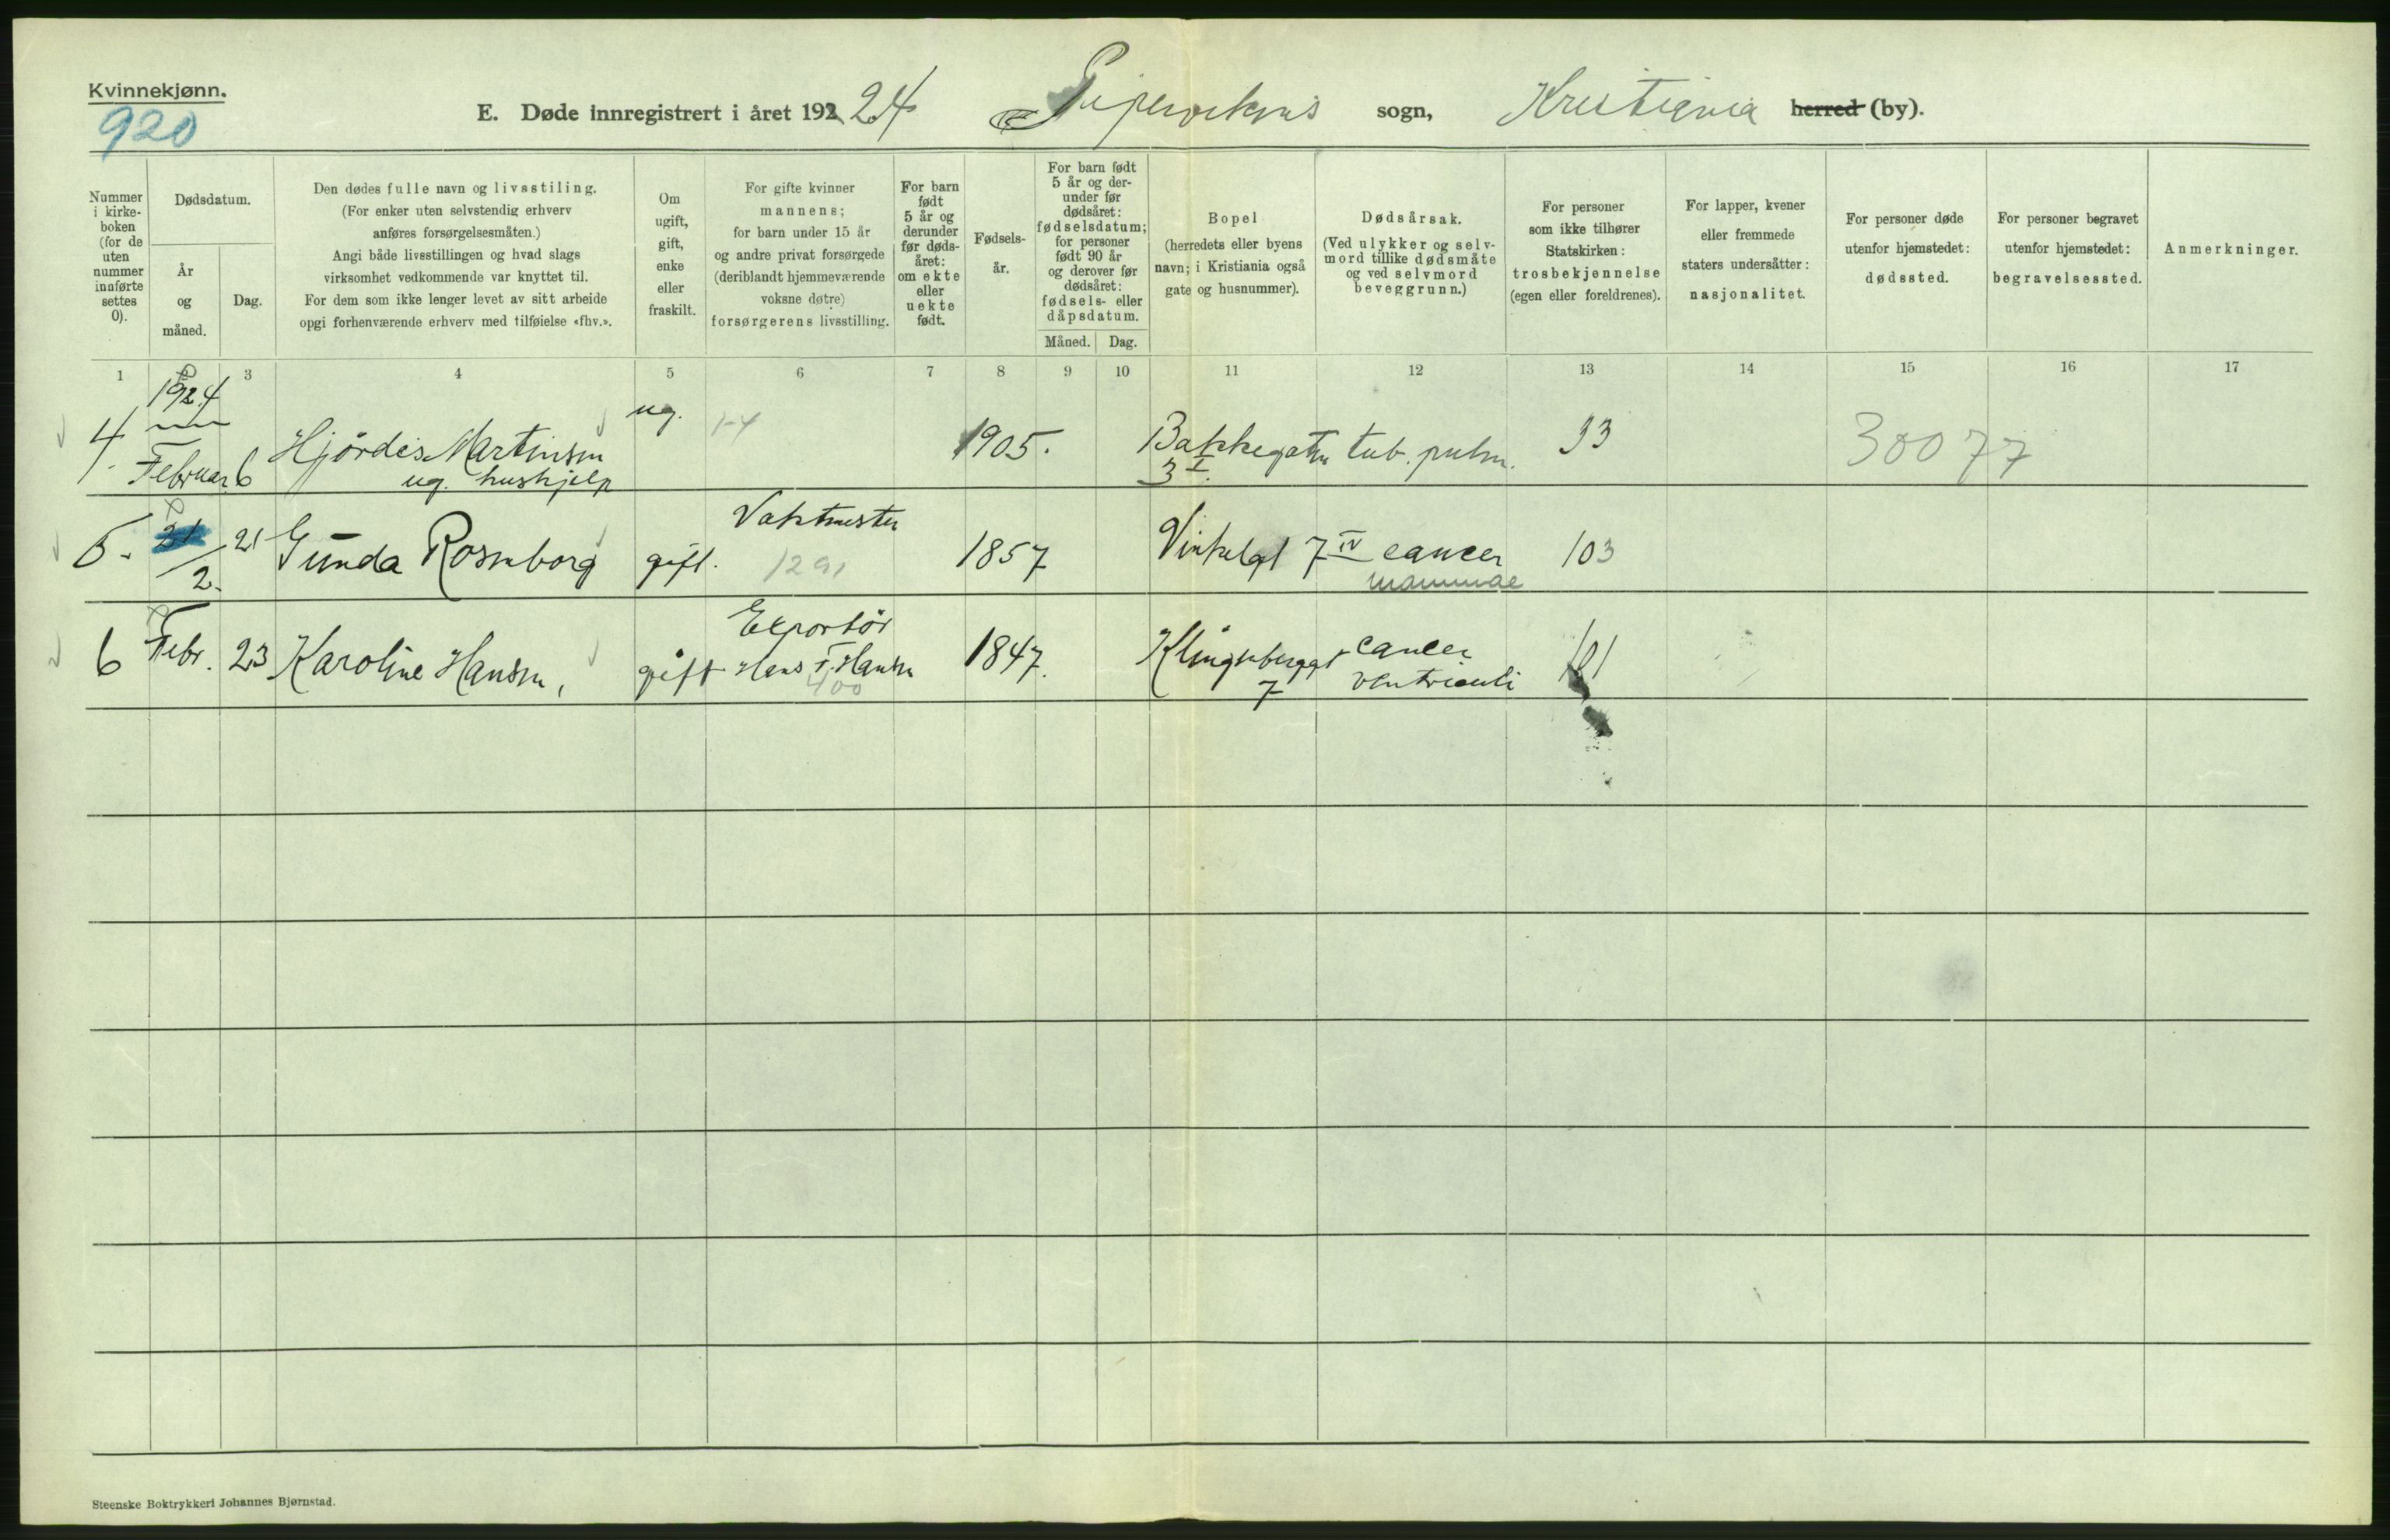 Kvinnekjønn.
920
E. Døde innregistrert i året 192 24 Pipervikens sogn, Kristiania herred (by).
Nummer i kirke- boken (for de uten nummer innførte settes 0).
Dødsdatum.
År og måned.
Dag.
Den dødes fulle navn og livsstiling.
(For enker uten selvstendig erhverv
anføres forsørgelsesmåten.)
Angi både livsstillingen og hvad slags
virksomhet vedkommende var knyttet til.
For dem som ikke lenger levet av sitt arbeide
opgi forhenværende erhverv med tilføielse «fhv.».
Om ugift, gift, enke eller fraskilt.
For gifte kvinner
mannens;
for barn under 15 år
og andre privat forsørgede
(deriblandt hjemmeværende
voksne døtre)
forsørgerens livsstilling.
For barn født 5 år og derunder før døds- året: om ekte eller uekte født.
Fødsels- år.
For barn født
5 år og der-
under før
dødsåret:
fødselsdatum;
for personer
født 90 år
og derover før
dødsåret:
fødsels- eller
dåpsdatum.
Måned. Dag.
Bopel
(herredets eller byens
navn; i Kristiania også
gate og husnummer).
Dødsårsak.
(Ved ulykker og selv-
mord tillike dødsmåte
og ved selvmord
beveggrunn.)
For personer
som ikke tilhører
Statskirken:
trosbekjennelse
(egen eller foreldrenes).
For lapper, kvener
eller fremmede
staters undersåtter:
nasjonalitet.
For personer døde
utenfor hjemstedet:
dødssted.
For personer begravet
utenfor hjemstedet:
begravelsessted.
Anmerkninger.
1 3 4 5 6 7 8 9 10 11 12 13 14 15 16 17
1924
4. Februar 6 Hjördis Martinsen ug. 1905. Bakkegaten tub. pulm. 33 30077
ug. hushjelp 3 I.
Vaktmester
5. 21 21 Gunda Rosenborg gift. 1291 1857 Vinkelgt 7 IV cancer 103
2. mammae
Exportör
6 Febr. 23 Karoline Hansen, gift Hans F. Hansen 1847. Klingenberggt cancer 101
400 7 ventriculi
Steenske Boktrykkeri Johannes Bjørnstad.